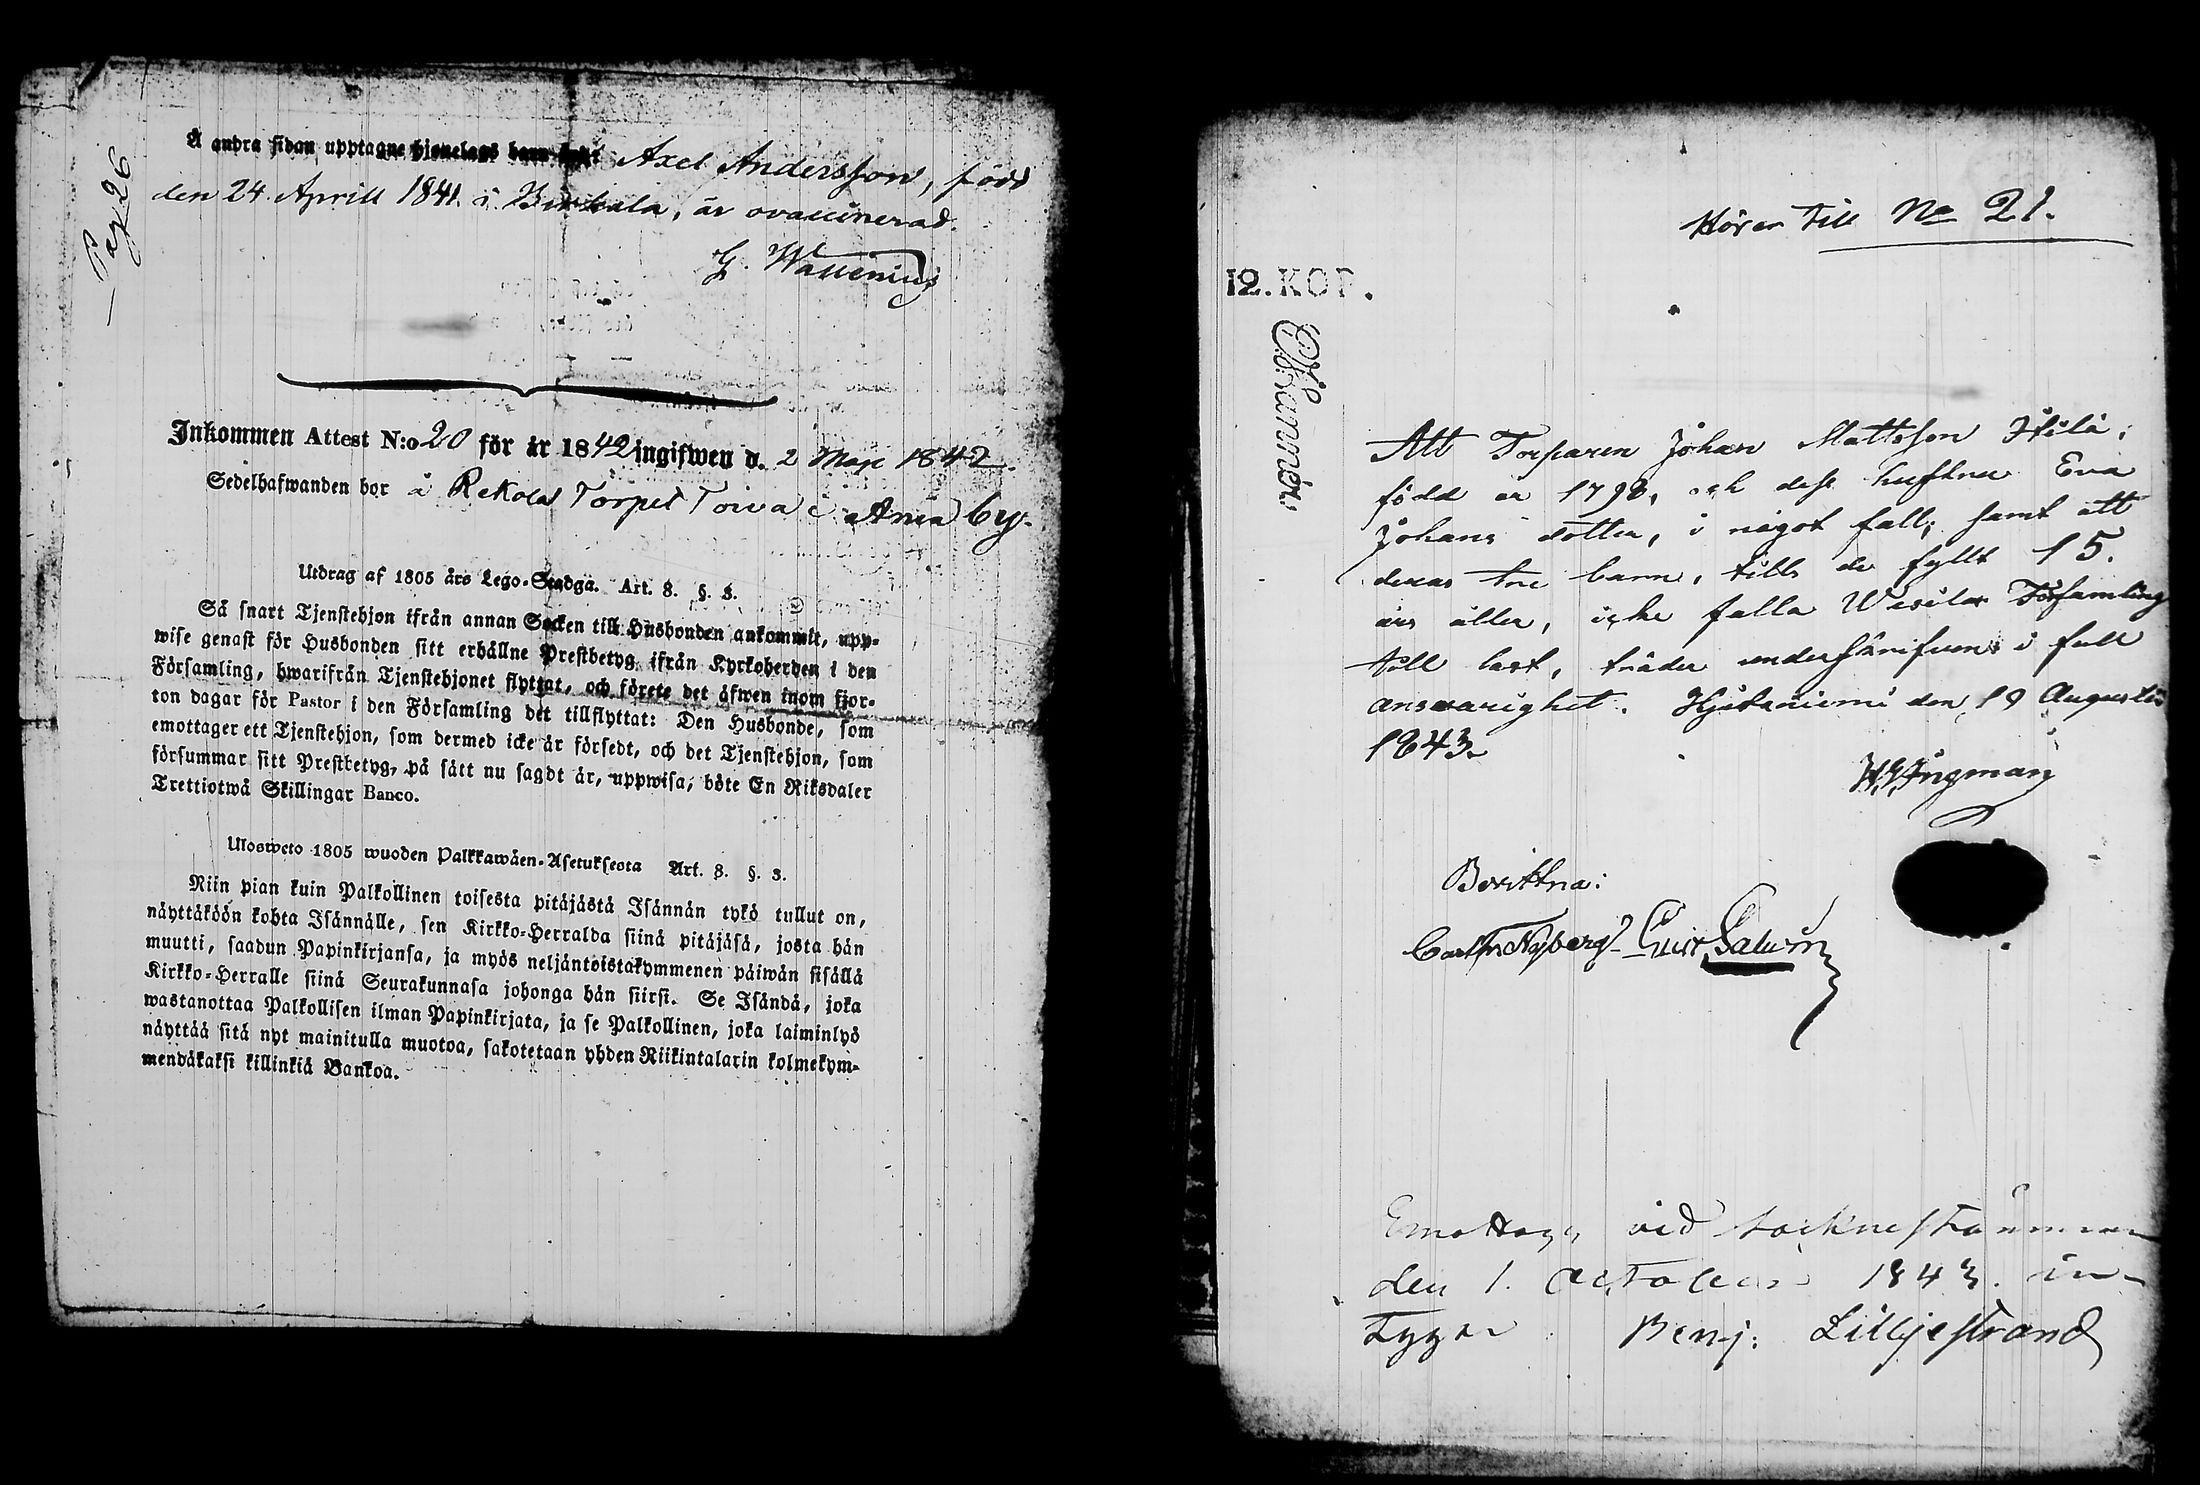 Pag 26
Å andra sidan upptagne hjonelags barn Axel Andersson, född
den 24 Aprill 1841 i Birkala, är ovaccinerad.
G. Wallenius
Inkommen Attest N:o 20 för år 1842 ingifwen d. 2 Maji 1842.
Sedelhafwanden bor å Rekola Torpet Toiva i Ania by.
Utdrag af 1805 års Lego-Stadga. Art. 8. §. 3.
Så snart Tjenstehjon ifrån annan Socken till Husbonden ankommit, upp-
wise genast för Husbonden sitt erhållne Prestbetyg ifrån Kyrkoherden i den
Församling, hwarifrån Tjenstehjonet flyttat, och förete det äfwen inom fjor-
ton dagar för Pastor i den Församling det tillflyttat: Den Husbonde, som
emottager ett Tjenstehjon, som dermed icke är försedt, och det Tjenstehjon, som
försummar sitt Prestbetyg, på sätt nu sagdt är, uppwisa, böte En Riksdaler
Trettiotwå Skillingar Banco.
Ulosweto 1805 wuoden Palkkawäen-Asetuksesta Art. 8. §. 3.
Niin pian kuin Palkollinen toisesta pitäjästä Isännän tykö tullut on,
näyttäköön kohta Isännälle, sen Kirkko-Herralda siinä pitäjäsä, josta hän
muutti, saadun Papinkirjansa, ja myös neljäntoistakymmenen päiwän sisällä
Kirkko-Herralle siinä Seurakunnasa johonga hän siirsi. Se Isändä, joka
wastanottaa Palkollisen ilman Papinkirjata, ja se Palkollinen, joka laiminlyö
näyttää sitä nyt mainitulla muotoa, sakotetaan yhden Riikintalarin kolmekym-
mendäkaksi killinkiä Bankoa.
Hörer till No 21.
12. KOP.
Att Torparen Johan Mattsson Itilä,
född år 1798, och dess hustru Eva
Johans dotter, i något fall, samt att
deras tre barn, tills de fyllt 15.
års ålder, icke falla Wesilax Församling
till last, träder undertecknad i full
answarighet. Hjetaniemi den 19 Augusti
1843.
Ingman
Bevittna:
Carl Fr Nyberg
Emottagi vid sockne stämman
den 1. October 1843. in-
tygar Benj: Lilljestrand